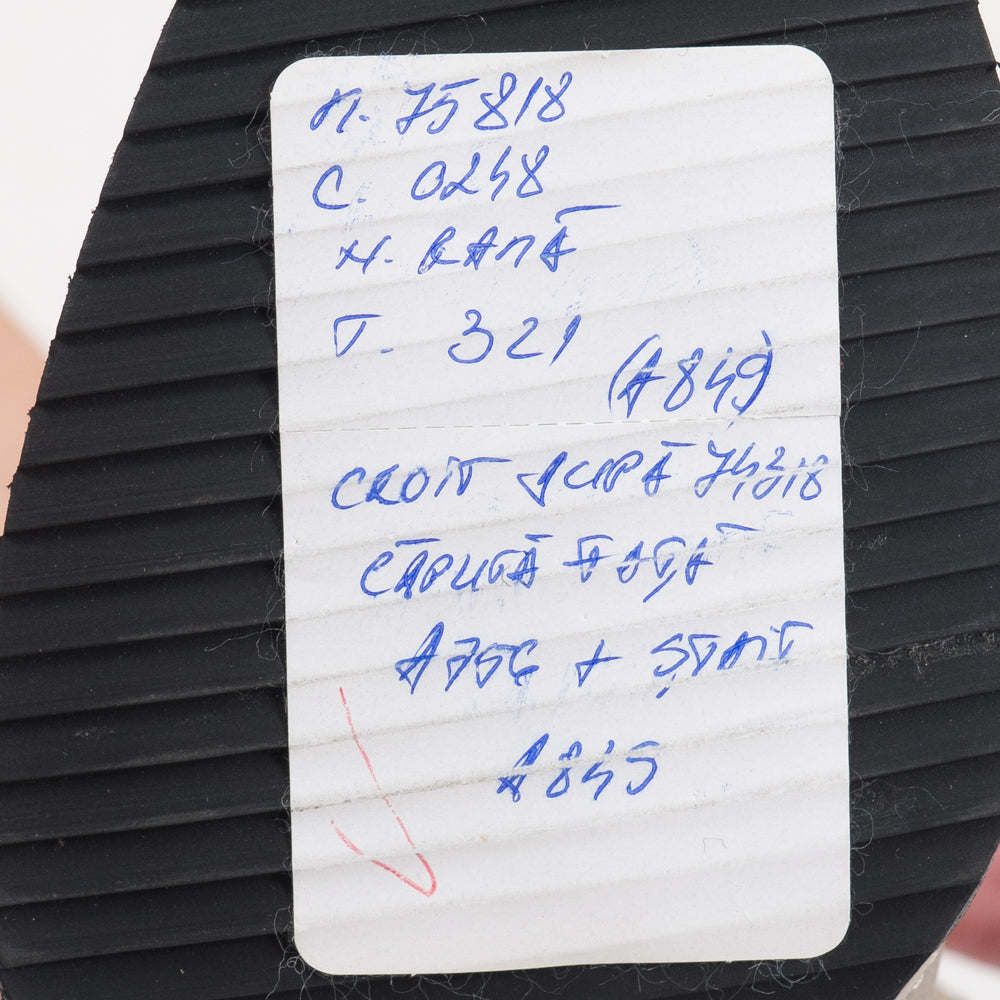 M. 75818
C. 0248
N. RAMĂ
T. 321
(A849)
CROIT DUPĂ 74318
CĂPUTĂ FAȚĂ
A756 + ȘTAIT
A845